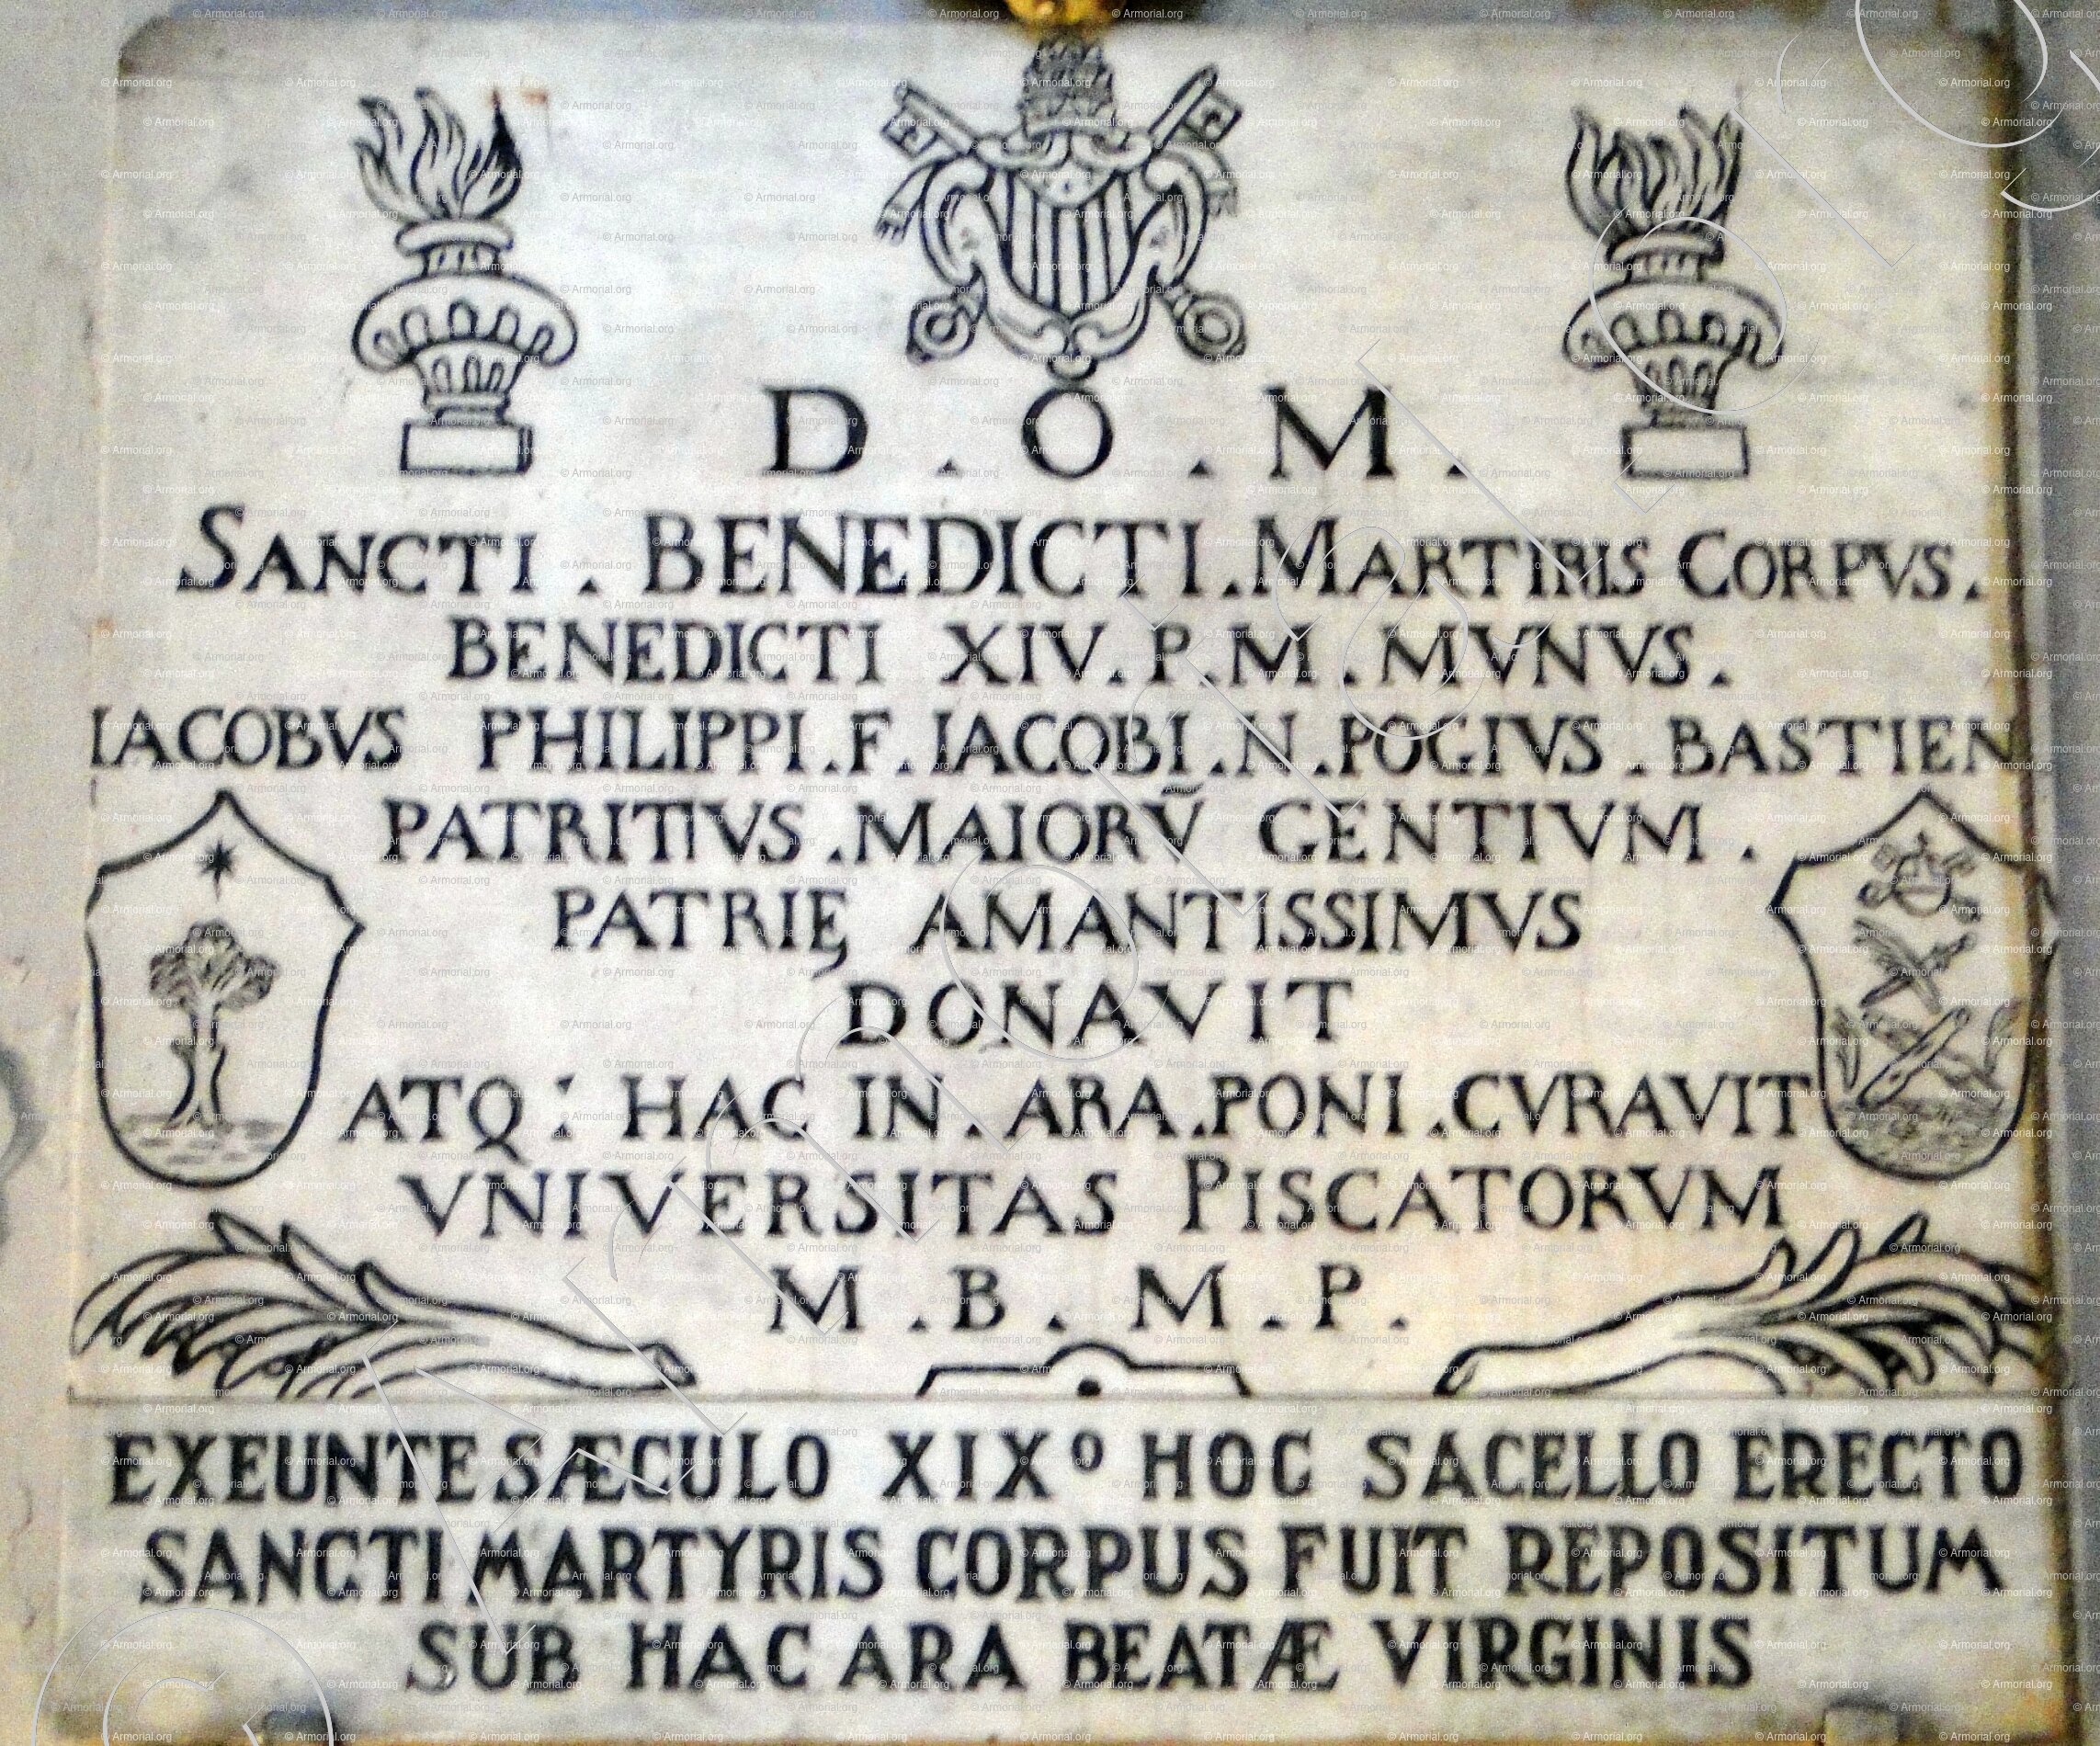 D . O . M .
SANCTI . BENEDICTI . MARTIRIS CORPVS .
BENEDICTI XIV . P . M . MVNVS .
IACOBVS PHILIPPI . F . IACOBI . N . POGIVS . BASTIEN
PATRITIVS . MAIORV̄ GENTIVM .
PATRIĘ AMANTISSIMVS
DONAVIT
ATQ : HAC IN . ARA . PONI . CVRAVIT
VNIVERSITAS PISCATORVM
M . B . M . P .
EXEUNTE SÆCULO XIXº HOC SACELLO ERECTO
SANCTI MARTYRIS CORPUS FUIT REPOSITUM
SUB HAC ARA BEATÆ VIRGINIS
© Armorial.org